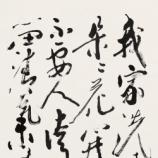 我家洗
朵々花开
不要人誇
留清氣